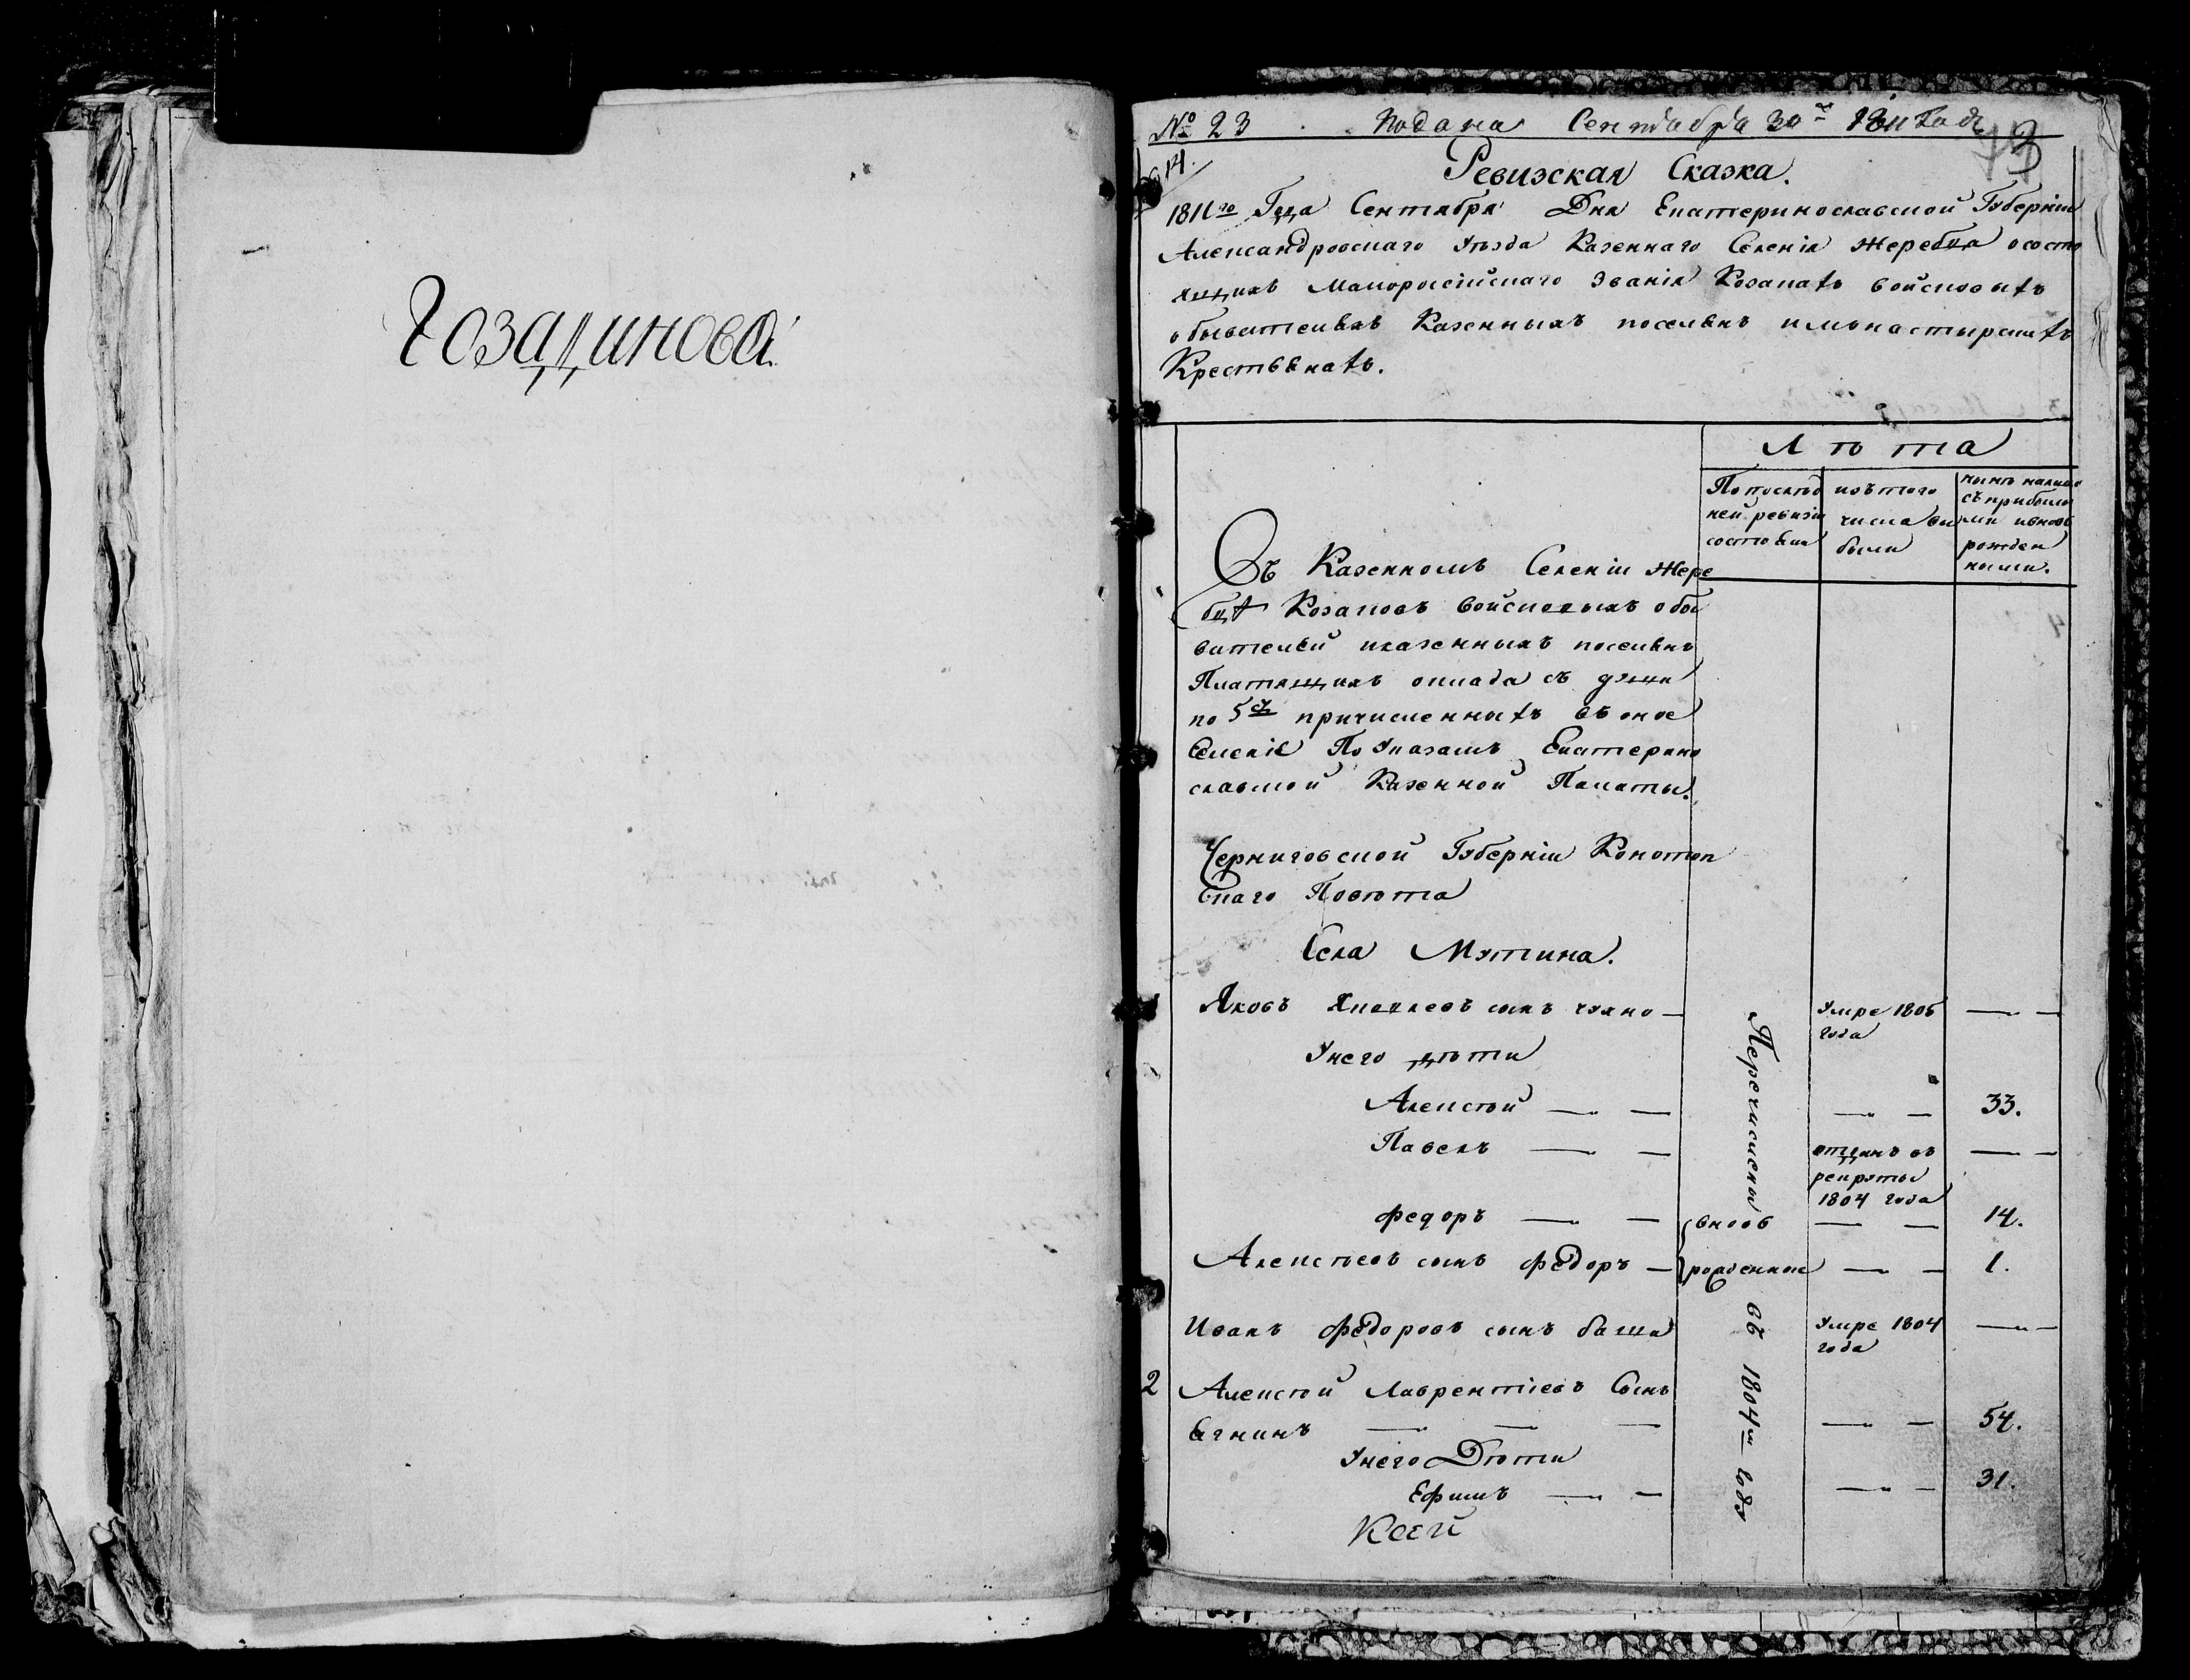 Козачинова
№ 23 Подана Сентября 30го 1811 года
Ревизская Сказка.
1811го Года Сентября Дня Екатеринославской Губерніи
Александровскаго уѣзда Казеннаго Селенія Жеребца о состо
ящихъ Малоросійскаго Званія Козакахъ войсковыхъ
обывателяхъ Казенныхъ поселянъ и монастырскихъ
Крестьянахъ.
Лѣта
По послѣд
ней ревизіи
состояли
изъ того
числа вы
были
нынѣ налицо
съ прибылы
ми и вновь
рожден
ными.
Въ Казенномъ Селеніи Жере
бцѣ Козаковъ войсковыхъ обы
вателей и казенныхъ поселянъ
Платящихъ оклада съ души
по 5 причисленныхъ въ оное
Селеніе По Указамъ Екатерино
славской Казенной Палаты.
Черниговской Губерніи Конотоп
скаго Повѣта
Села Мутина.
Яковъ сынъ чухно — умре 1805 — —
года
У него дѣти
Алексѣй — — — — 33.
Павелъ — — отданъ въ — —
рекруты
1804 года
Федоръ — — вновь — — 14.
Алексѣевъ сынъ Федоръ — рожденные — — 1.
Перечислены въ 1804м году
Иванъ Федоровъ сынъ баша умре 1804 — —
года
2 Алексѣй Лаврентіевъ Сынъ
— — — — — 54.
У него Дѣти
Ефимъ — — — — 31.